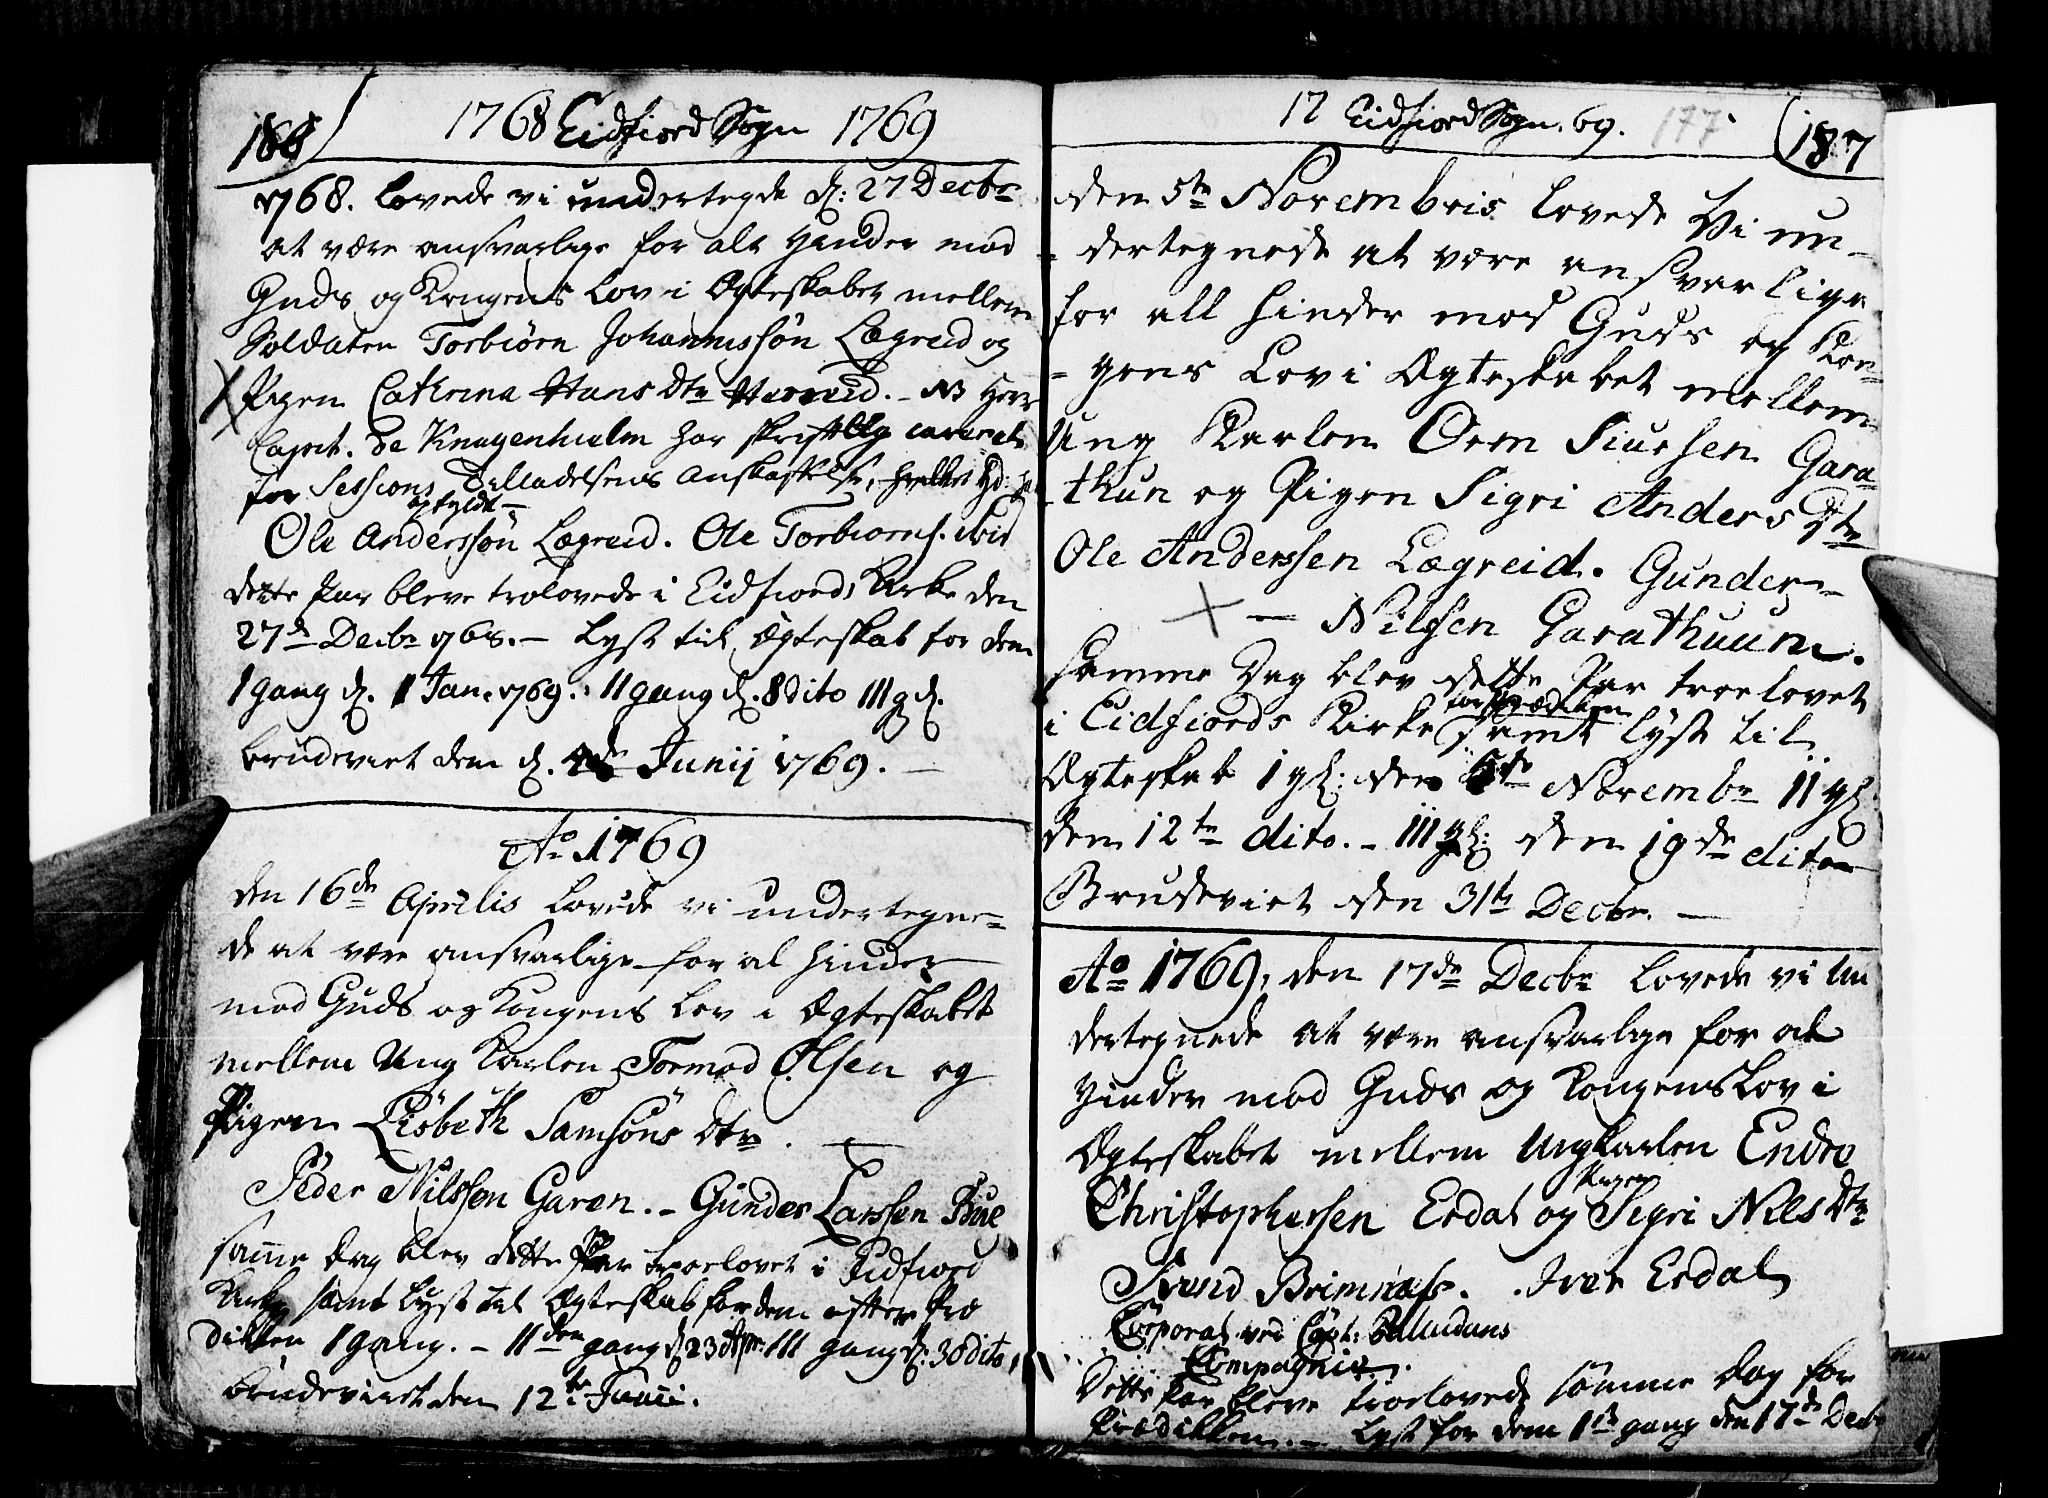 186
1768 Eidfiord Sogn 1769
1768. Lovede vi undertegde d: 27 Decbr
at være ansvarlige for alt Hinder mod
Guds og Kongens Lov i Ægteskabet mellem
Soldaten Torbiörn Johannissön Lægreid og
Pigen Cathrina Hans Dtr Hereid. - NB Herr
Capit. de Knagenhielm har skriftlig caveret
for Sessions Tilladelsens Anskaffelse,
opfyldt -
Ole Anderssön Lægreid. Ole Torbiornss. ibid
dette Par bleve trolovede i Eidfiords Kirke den
27de Decbr 1768. - Lyst til Ægteskab for dem
I gang d. 1 Jan. 1769. II gang d. 8 dito III g d.
brudeviet dem d. Junij 1769. -
Ao 1769
den 16de Aprilis Lovede vi undertegne-
de at være ansvarlige for al Hinder
mod Guds og Kongens Lov i Ægteskabet
mellem Ung Karlen Tormod Olsen og
Pigen Lisbeth Samsöns Dtr. -
Peder Nilssen Garen. - Gunder Larssen Bue
samme dag blev dette Par troelovet i Eidfiord
Kirke samt lyst til Ægteskab for dem efter Præ
diken I gang. - II den gang d 23 Apr. III gang d. 30 dito,
brudeviet dem 12te Junii.
17 Eidfiord Sogn. 69.
177
187
den 5te Novembris lovede Vi un-
dertegnede at være ansvarlige
for all hinder mod Guds og Kon-
gens Lov i Ægteskabet mellem
Ung Karlen Orm Siursen Gara-
thun og Pigen Sigri Anders Dtr
Ole Anderssen Lægreid. Gunder
- Nilssen Garathuun.
samme Dag blev dette Par troelovet
i Eidfiords Kirke for Prædiken samt lyst til
Ægteskab I g: den 5te Novembr II g
den 12te dito. - III g: den 19de dito
Brudeviet den 31te Decbr. -
Ao 1769, den 17de Decbr Lovede vi un
dertegnede at være ansvarlige for al
Hinder mod Guds og Kongens Lov i
Ægteskabet mellem Ungkarlen Endre
Christophersen Erdal og Pigen Sigri Nils Dtr
Svend Brimnæss. Iver Erdal
Corporal ved Capt: Palludans
Compagnie.
Dette Par bleve troelovede samme Dag for
Prædikken. - Lyst for dem 1ste gang den 17de Decbr